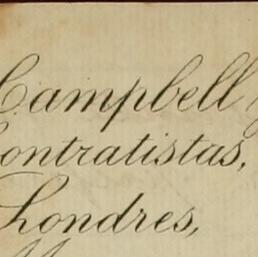 Campbell y
Contratistas,
Londres,